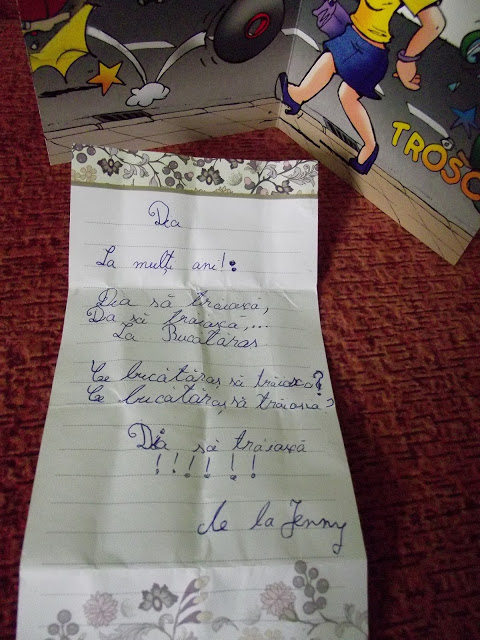 TROSC
Dia
La mulți ani!:
Dia să trăiască,
Da să trăiască,...
La Bucătăraș
Ce bucătăraș să trăiască?
Ce bucătăraș să trăiască?
Dia să trăiască
! ! ! ! ! !
de la Jenny